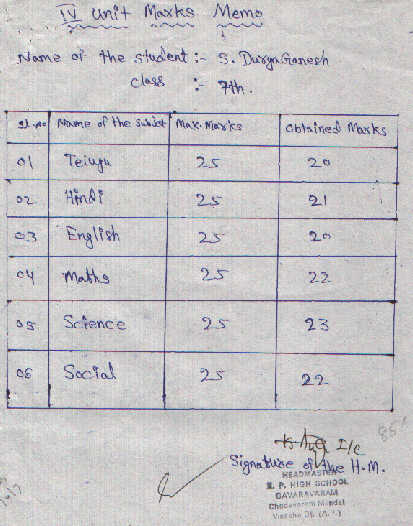 IV Unit Marks Memo
Name of the student :- S. Durga Ganesh
class :- 7th.
Sl.no Name of the Subject Max. Marks Obtained Marks
01 Telugu 25 20
02 Hindi 25 21
03 English 25 20
04 Maths 25 22
05 Science 25 23
06 Social 25 22
85
I/c
Signature of the H.M.
HEADMASTER
Z. P. HIGH SCHOOL
DAVARAVARAM
Chodavaram Mandal